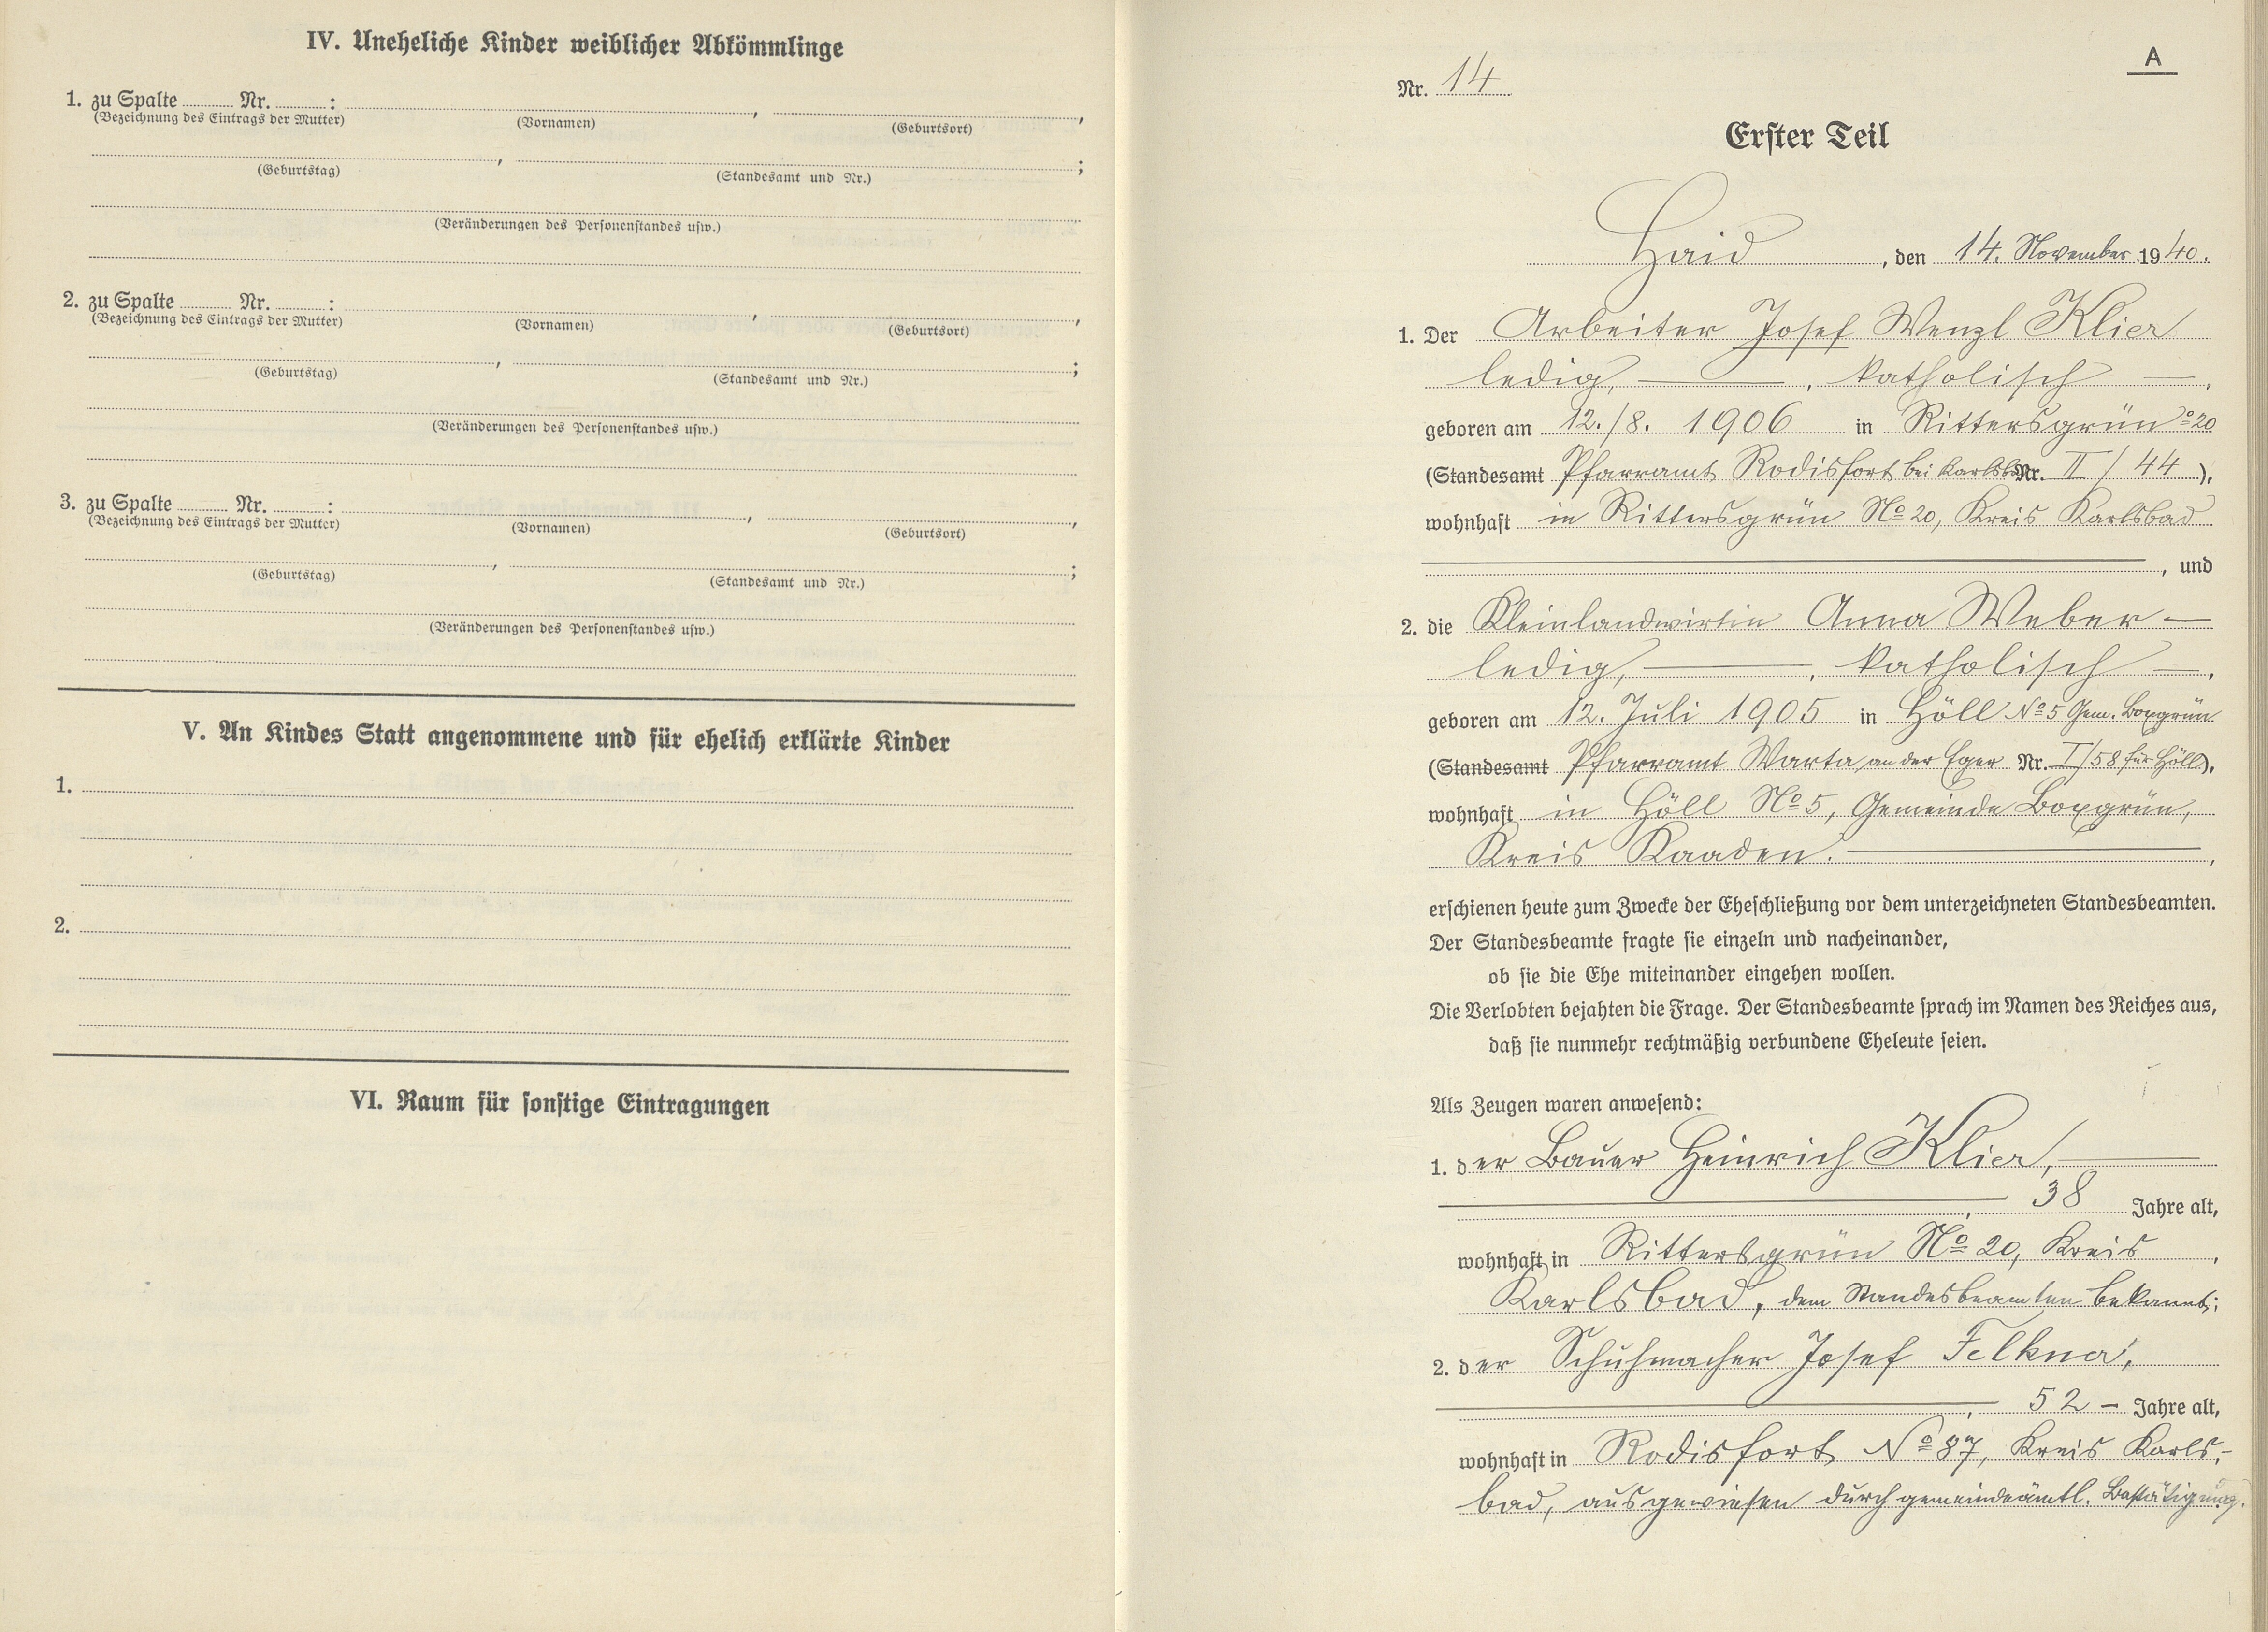 IV. Uneheliche Kinder weiblicher Abkömmlinge
1. zu Spalte ............ Nr. ............ : ............ , ............ ,
(Bezeichnung des Eintrags der Mutter) (Vornamen) (Geburtsort)
............ , ............ ;
(Geburtstag) (Standesamt und Nr.)
(Veränderungen des Personenstandes usw.)
2. zu Spalte ............ Nr. ............ : ............ , ............ ,
(Bezeichnung des Eintrags der Mutter) (Vornamen) (Geburtsort)
............ , ............ ;
(Geburtstag) (Standesamt und Nr.)
(Veränderungen des Personenstandes usw.)
3. zu Spalte ............ Nr. ............ : ............ , ............ ,
(Bezeichnung des Eintrags der Mutter) (Vornamen) (Geburtsort)
............ , ............ ;
(Geburtstag) (Standesamt und Nr.)
(Veränderungen des Personenstandes usw.)
V. An Kindes Statt angenommene und für ehelich erklärte Kinder
1.
2.
VI. Raum für sonstige Eintragungen
A
Nr. 14
Erster Teil
Haid, den 14. November 1940.
1. Der Arbeiter Josef Wenzl Klier
ledig, — , katholisch — ,
geboren am 12./8. 1906 in Rittersgrün № 20
(Standesamt Pfarramt Rodisfort bei Karlsb. Nr. II / 44 ),
wohnhaft in Rittersgrün № 20, Kreis Karlsbad
, und
2. die Kleinlandwirtin Anna Weber —
ledig, — , katholisch — ,
geboren am 12. Juli 1905 in Höll № 5 Gem. Boxgrün
(Standesamt Pfarramt Warta an der Eger Nr. I/58 für Höll),
wohnhaft in Höll № 5, Gemeinde Boxgrün,
Kreis Kaaden. — ,
erschienen heute zum Zwecke der Eheschließung vor dem unterzeichneten Standesbeamten.
Der Standesbeamte fragte sie einzeln und nacheinander,
ob sie die Ehe miteinander eingehen wollen.
Die Verlobten bejahten die Frage. Der Standesbeamte sprach im Namen des Reiches aus,
daß sie nunmehr rechtmäßig verbundene Eheleute seien.
Als Zeugen waren anwesend:
1. der Bauer Heinrich Klier, —
— , 38 Jahre alt,
wohnhaft in Rittersgrün № 20, Kreis ,
Karlsbad, dem Standesbeamten bekannt;
2. der Schuhmacher Josef Felkner,
— , 52 – Jahre alt,
wohnhaft in Rodisfort № 87, Kreis Karls-
bad, ausgewiesen durch gemeindeämtl. Bestätigung.